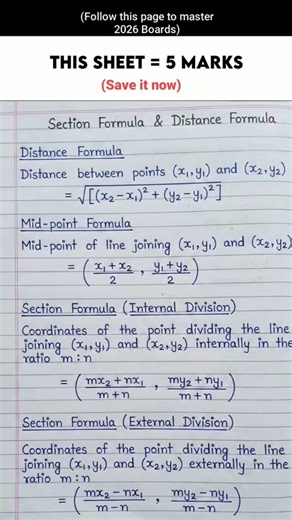 (Follow this page to master
2026 Boards)
THIS SHEET = 5 MARKS
(Save it now)
Section Formula & Distance Formula
Distance Formula
Distance between points (x₁,y₁) and (x₂,y₂)
= √[(x₂-x₁)² + (y₂-y₁)²]
Mid-point Formula
Mid-point of line joining (x₁,y₁) and (x₂,y₂)
= ( x₁+x₂ / 2 , y₁+y₂ / 2 )
Section Formula (Internal Division)
Coordinates of the point dividing the line
joining (x₁,y₁) and (x₂,y₂) internally in the
ratio m:n
= ( mx₂+nx₁ / m+n , my₂+ny₁ / m+n )
Section Formula (External Division)
Coordinates of the point dividing the line
joining (x₁,y₁) and (x₂,y₂) externally in the
ratio m:n
= ( mx₂-nx₁ / m-n , my₂-ny₁ / m-n )